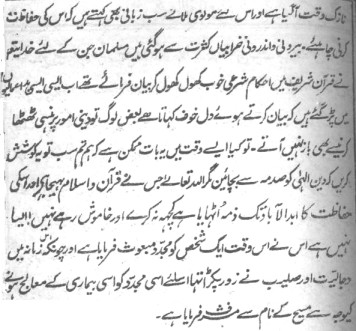 نازک وقت آگیا ہے اور اس لئے مولوی ملاّنے سب زبانی بھی کہتے ہیں کہ اس کی حفاظت
کرنی چاہئے۔ بیرونی و اندرونی خرابیاں کثرت سے ہوگئی ہیں مسلمان جن کے لئے خدا تعالےٰ
نے قرآن شریف میں احکام شرعی خوب کھول کھول کر بیان فرمائے تھے اب ایسی ایسی
میں پڑ گئے ہیں کہ بیان کرتے ہوئے دل خوف کھاتا ہے بعض لوگ تو دینی امور پر ہنسی ٹھٹھا
کرنے سے بھی باز نہیں آتے۔ تو کیا ایسے وقت میں یہ بات ممکن ہے کہ ہم تم سب تو یہ کوشش
کریں کہ دین الٰہی کو صدمہ سے بچائیں مگر اللہ تعالےٰ جس نے قرآن و اسلام بھیجا ہے اور اسکی
حفاظت کا ابدالآباد تک ذمہ اُٹھایا ہے کچھ نہ کرے اور خاموش رہے نہیں ایسا
نہیں ہے اس نے اس وقت ایک شخص کو مجدّد مبعوث فرمایا ہے اور چونکہ زمانہ میں
دجالیت اور صلیب نے زور پکڑا تھا اسلئے اسی مجدّد کو اسی بیماری کے معالج ہونے
کیوجہ سے مسیح کے نام سے مشرف فرمایا ہے۔